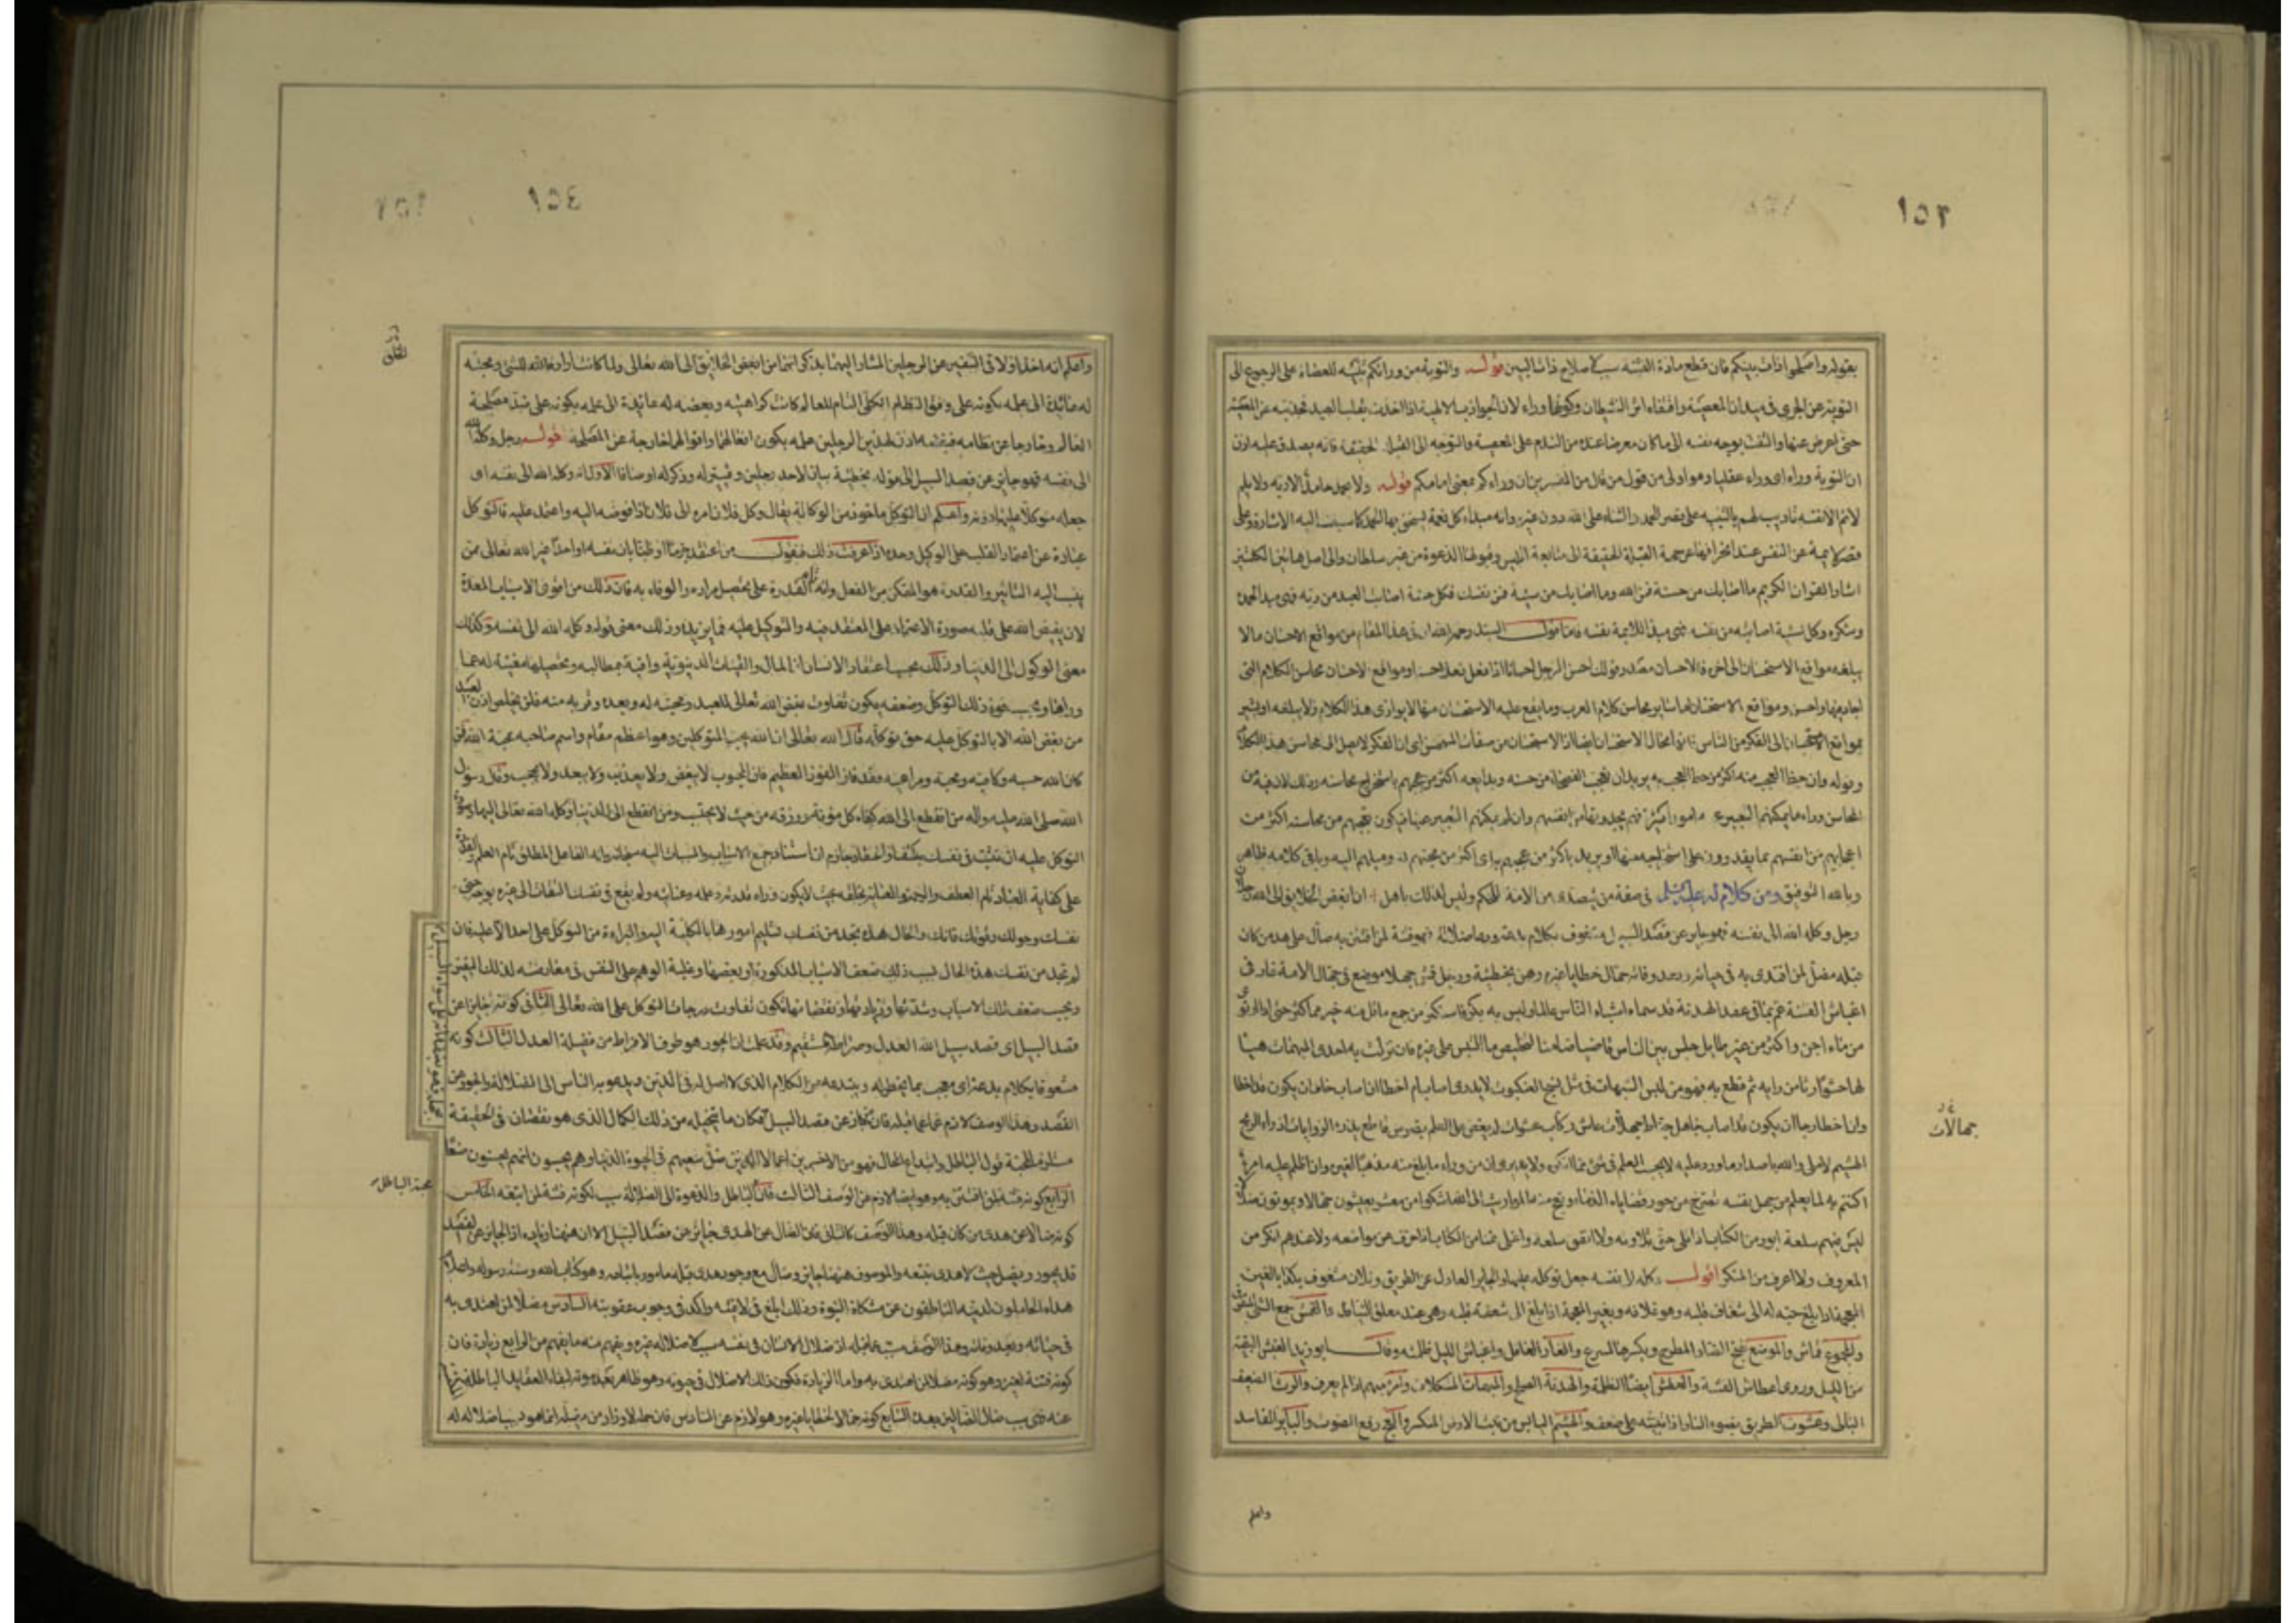 ١٥٣
بقوله واصلحوا ذات بينكم فان قطع مادة الفتنة سبب لاصلاح ذات البين قوله والتوبة من ورائكم تنبيه للعصاة على الرجوع الى
التوبة عن الجري في ميدان المعصية واقتفاء اثر الشيطان وكونها وراء لان الجواذب الالهية اذا اخذت بقلب العبد فجذبته عن المعصية
حتى اعرض عنها والتفت بوجه نفسه الى ما كان معرضا عنه من الندم على المعصية والتوجه الى القبلة الحقيقية فانه يصدق عليه اذن
ان التوبة وراء اى وراء عقليا وهو اولى من قول من قال من المفسرين ان وراءكم بمعنى امامكم قوله ولا يحمد حامد الا ربه ولا يلم
لائم الا نفسه تاديب لهم بالتنبيه على قصر الحمد والثناء على الله دون غيره وانه مبداء كل نعمة يستحق بها الحمد كما سبقت اليه الاشارة وعلى
قصر لائمة عن النفس عند انحرافها عن جهة القبلة الحقيقة الى متابعة ابليس وقبولها الدعوة من غير سلطان والى اصل هاتين الكلمتين
اشار القران الكريم ما اصابك من حسنة فمن الله وما اصابك من سيئة فمن نفسك فكل حسنة اصابت العبد من ربه فهى مبدا لحمده
وشكره وكل سيئة اصابته من نفسه فهى مبدا للائمة نفسه فاما قول السيد رحمه الله ان في هذا المقام من مواقع الاحسان ما لا
يبلغه مواقع الاستحسان الى اخره فالاحسان مصدر قولك احسن الرجل احسانا اذا فعل فعلا حسنا ومواقع الاحسان محاسن الكلام التى
اجاد فيها واحسن ومواقع الاستحسان
وقوله وان حظ العجب منه اكثر من حظ العجب به يريد ان تعجب الفصحاء من حسنه وبدايعه اكثر من عجبهم باستخراج محاسنه وذلك لان فيه من
المحاسن وراء ما يمكنهم التعبير عنه
وبالله التوفيق ومن كلام له عليه السلام في صفة من يتصدى من الامة للحكم وليس لذلك باهل ان ابغض الخلايق الى الله رجلان
رجل وكله الله الى نفسه فهو جاير عن قصد السبيل مشغوف بكلام بدعة ودعاء ضلالة فهو فتنة لمن افتتن به ضال عن هدى من كان
قبله مضل لمن اقتدى به في حياته وبعد وفاته حمال خطايا غيره رهن بخطيئته ورجل قمش جهلا موضع في جهال الامة غار في
اغباش الفتنة عم بما في عقد الهدنة قد سماه اشباه الناس عالما وليس به بكر فاستكثر من جمع ما قل منه خير مما كثر حتى اذا ارتوى
من ماء اجن واكتنز من غير طايل جلس بين الناس قاضيا ضامنا لتخليص ما التبس على غيره فان نزلت به احدى المبهمات هيأ
لها حشوا رثا من رايه ثم قطع به فهو من لبس الشبهات في مثل نسج العنكبوت لا يدرى اصاب ام اخطأ ان اصاب خاف ان يكون قد اخطأ
وان اخطأ رجا ان يكون قد اصاب جاهل خباط جهلات عاش ركاب عشوات لم يعض على العلم بضرس قاطع يذرى الروايات اذراء الريح
الهشيم لا ملى والله باصدار ما ورد عليه لا يحسب العلم في شئ مما انكره ولا يرى ان من وراء ما بلغ منه مذهبا لغيره وان اظلم عليه امر
اكتتم به لما يعلم من جهل نفسه تصرخ من جور قضاياه الدماء وتعج منه المواريث الى الله اشكو من معشر يعيشون جهالا ويموتون ضلالا
ليس فيهم سلعة ابور من الكتاب اذا تلى حق تلاوته ولا انفق سلعة ولا اغلى ثمنا من الكتاب اذا حرف عن مواضعه ولا عندهم انكر من
المعروف ولا اعرف من المنكر اقول وكله لا نفسه جعل توكله عليها والجاير العادل عن الطريق وفلان مشغوف بكذا بالغين
المعجمة اذا بلغ حبه له الى شغاف قلبه وهو غلافه وبغير المعجمة اذا بلغ الى شعفة قلبه وهى عند معلق النياط والقمش جمع الشئ المتفرق
والمجموع قماش والموضع بفتح الضاد المطرح وبكسرها المسرع والغار الغافل واغباش الليل ظلمه وقال ابو زيد الغبش البقية
من الليل وروى اغطاش الفتنة والغطش ايضا الظلمة والهدنة الصلح والمبهمات المشكلات وامر مبهم اذا لم يعرف والرث الضعيف
البالى وعشوت الطريق بضوء النار اذا تبينته على ضعف والهشيم اليابس من نبت الارض المتكسر والعج رفع الصوت والباير الفاسد
جهالات
واعلم
١٥٤
واعلم انه اخذ اولا في التنفير عن الرجلين المشار اليهما بذكر انهما من ابغض الخلايق الى الله تعالى ولما كانت ارادة الله للشئ ومحبته
له عائدة الى علمه بكونه على وفق النظام الكلى التام للعالم كانت كراهيته وبغضه له عائدة الى علمه بكونه على ضد مصلحة
العالم وخارجا عن نظامه فبغضه اذن لهذين الرجلين علمه بكون افعالهما واقوالهما خارجة عن المصلحة قوله رجل وكله الله
الى نفسه فهو جاير عن قصد السبيل الى قوله بخطيئته بيان لاحد رجلين وتميز له وذكر له اوصافا الاول انه وكله الله الى نفسه اى
جعله متوكلا عليها دونه واعلم ان التوكيل ماخوذ من الوكالة يقال وكل فلان امره الى فلان اذا فوضه اليه واعتمد عليه فالتوكل
عبارة عن اعتماد القلب على الوكيل وحده اذا عرفت ذلك فنقول من اعتقد جزما او ظنا بان نفسه او احدا غير الله تعالى ممن
ينسب اليه التاثير والقدرة هو المتمكن من الفعل وانه تام القدرة على تحصيل مراده والوفاء به فان ذلك من اقوى الاسباب المعدة
لان يفيض الله على قلبه صورة الاعتماد على المعتقد فيه والتوكل عليه فيما يريده وذلك معنى قوله وكله الله الى نفسه وكذلك
معنى الوكول الى الدنيا وذلك بحسب اعتقاد الانسان ان المال والقينات الدنيوية وافية بمطالبه وتحصيلها مغنية له عما
وراءها وبحسب قوة ذلك التوكل وضعفه يكون تفاوت بغض الله تعالى للعبد ومحبته له وبعده وقربه منه فلن يخلص اذن العبد
من بغض الله الا بالتوكل عليه حق توكله قال الله تعالى ان الله يحب المتوكلين وهو اعظم مقام وسم صاحبه بمحبة الله فمن
كان الله حسبه وكافيه ومحبه ومراعيه فقد فاز الفوز العظيم فان المحبوب لا يبغض ولا يعذب ولا يبعد ولا يحجب وقال رسول
الله صلى الله عليه واله من انقطع الى الله كفاه كل مؤنة ورزقه من حيث لا يحتسب ومن انقطع الى الدنيا وكله الله تعالى اليها وصورة
التوكل عليه ان تثبت في نفسك بكشف او اعتقاد جازم ان استناد جميع الاسباب والمسببات اليه سبحانه وانه الفاعل المطلق تام العلم والقدرة
على كفاية العباد تام العطف والرحمة والعناية بخلقه بحيث لا يكون وراء قدرته وعلمه وعنايته ولم يقع في نفسك التفات الى غيره بوجه حتى
نفسك وحولك وقوتك فانك والحال هذه تجد من نفسك تسليم امورها بالكلية اليه والبراءة من التوكل على احد الا عليه فان
لم تجد من نفسك هذه الحال فسبب ذلك ضعف الاسباب المذكورة او بعضها وغلبة الوهم على النفس في معارضته لذلك اليقين
وبحسب ضعف تلك الاسباب وشدتها وزيادتها ونقصانها يكون تفاوت درجات التوكل على الله تعالى الثانى كونه جايرا عن
قصد السبيل اى قصد سبيل الله العدل وصراطه المستقيم وقد علمت ان الجور هو طرف الافراط من فضيلة العدل الثالث كونه
مشغوفا بكلام بدعة اى معجب بما يخطر له ويبتدعه من الكلام الذى لا اصل له في الدين ويدعو به الناس الى الضلالة والجور عن
القصد وهذا الوصف لازم عما قبله فان من جار عن قصد السبيل فكان ما يتخيله من ذلك الكمال الذى هو نقصان في الحقيقة
مستلزم لمحبة قول الباطل وابتداع المحال فهو من الاخسرين اعمالا الذين ضل سعيهم في الحيوة الدنيا وهم يحسبون انهم يحسنون صنعا
الرابع كونه فتنة لمن افتتن به وهو ايضا لازم عن الوصف الثالث فان محبة الباطل والدعوة الى الضلالة سبب لكونه فتنة لمن اتبعه الخامس
كونه ضالا عن هدى من كان قبله وهذا الوصف كالثانى فان الضال عن الهدى جاير عن قصد السبيل الا ان ههنا زيادة اذ الجاير عن القصد
قد يجور ويضل حيث لا هدى يتبعه والموصوف ههنا جاير وضال مع وجود هدى قبله مامور باتباعه وهو كتاب الله وسنة رسوله واعلام
هداه الحاملون لدينه الناطقون عن مشكاة النبوة وذلك ابلغ في لائمته واكد في وجوب عقوبته السادس كونه مضلا لمن اهتدى به
في حياته وبعد وفاته وهذا الوصف مسبب عما قبله اذ ضلال الانسان في نفسه سبب لاضلاله غيره ويفهم منه ما يفهم من الرابع زيادة فان
كونه فتنة لغيره وهو كونه مضلا لمن اهتدى به واما الزيادة فكون ذلك الاضلال في حيوته وهو ظاهر وبعد موته لبقاء العقايد الباطلة
عنه فهى سبب ضلال الضالين بعده السابع كونه حمالا لخطايا غيره وهو لازم عن السادس فان حمله لاوزار من يضله انما هو بسبب اضلاله له
محبة الباطل